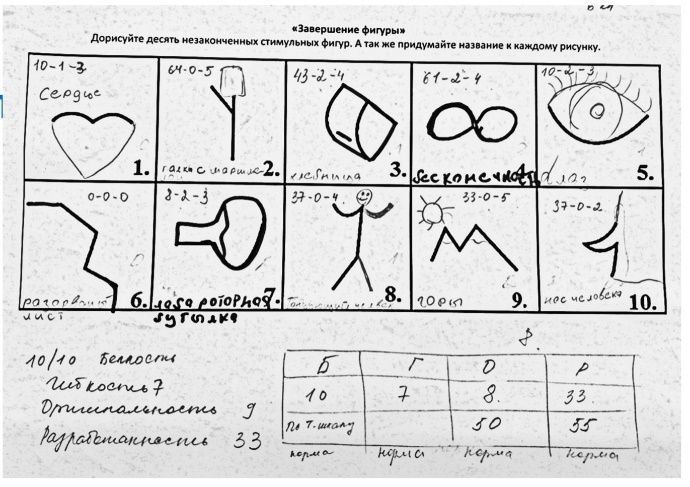 «Завершение фигуры»
Дорисуйте десять незаконченных стимульных фигур. А так же придумайте название к каждому рисунку.
10-1-3
Сердце
1.
64-0-5
палка с
2.
43-2-4
хлебница
3.
61-2-4
бесконечность
4.
10-2-3
глаз
5.
0-0-0
разорваный
лист
6.
8-2-3
лабараторная
бутылка
7.
37-0-4
8.
33-0-5
горы
9.
37-0-2
нос человека
10.
8.
10/10 Беглость
Гибкость 7
Оригинальность 9
Разработанность 33
Б Г О Р
10 7 8. 33
По Т. шкалу 50 55
норма норма норма норма